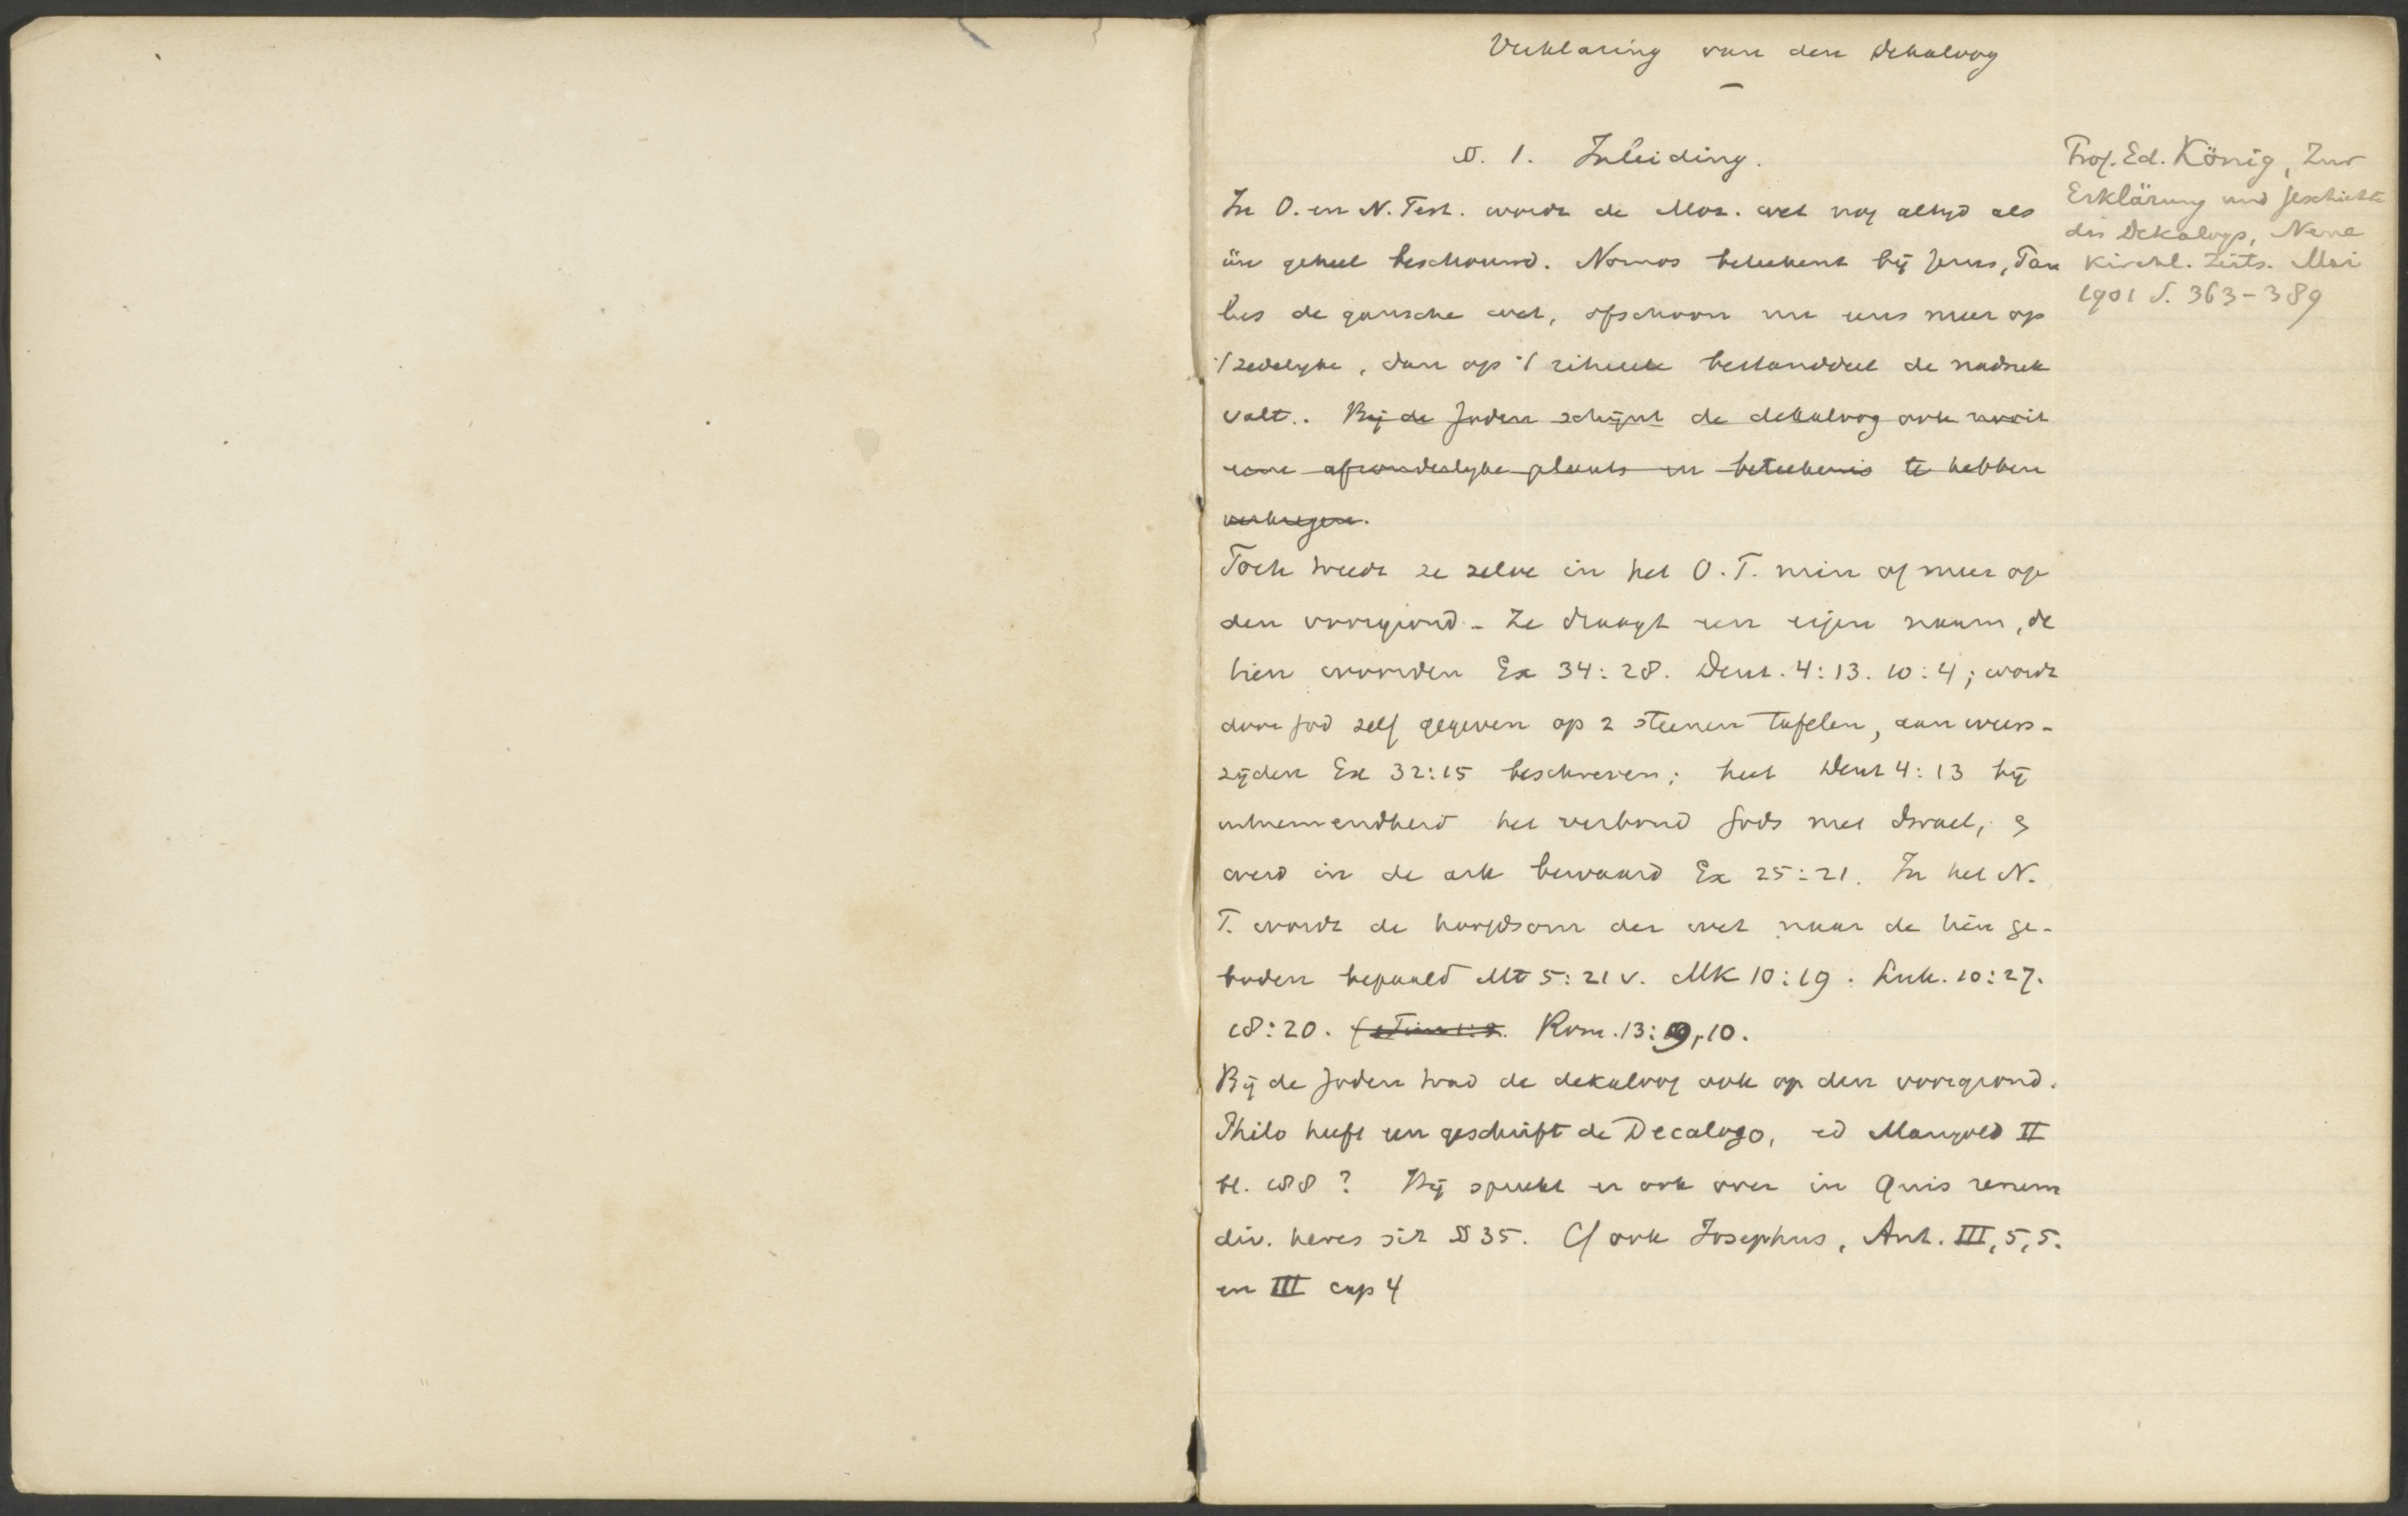 Verklaring van den Dekaloog
§. 1. Inleiding.
In O. en N. Test. wordt de Moz. wet nog altyd als
één geheel beschouwd. Nomos beteekent bij Jezus, Pau
lus de gansche wet, ofschoon nu eens meer op
't zedelyke, dan op 't ritueele bestanddeel de nadruk
valt. Bij de Joden schijnt de dekaloog ook nooit
eene afzonderlyke plaats en beteekenis te hebben
verkregen.
Toch treedt ze zelve in het O. T. min of meer op
den voorgrond. Ze draagt een eigen naam, de
tien woorden Ex 34:28. Deut. 4:13. 10:4; wordt
door God zelf gegeven op 2 steenen tafelen, aan weers-
zijden Ex 32:15 beschreven; heet Deut 4:13 bij
uitnemendheid het verbond Gods met Israel, &
werd in de ark bewaard Ex 25:21. In het N.
T. wordt de hoofdsom der wet naar de tien ge-
boden bepaald Mt 5:21 v. Mk 10:19. Luk. 10:27.
18:20. (1 Tim 1:9. Rom. 13:9,10.
Bij de Joden trad de dekaloog ook op den voorgrond.
Philo heeft een geschrift de Decalogo, ed Mangold II
bl. 188? Hij spreekt er ook over in Quis rerum
div. heres sit § 35. Cf ook Josephus, Ant. III, 5, 5.
en III cap 4
Prof. Ed. König, Zur
Erklärung und Geschichte
des Dekalogs, Neue
Kirchl. Zeits. Mai
1901 S. 363-389